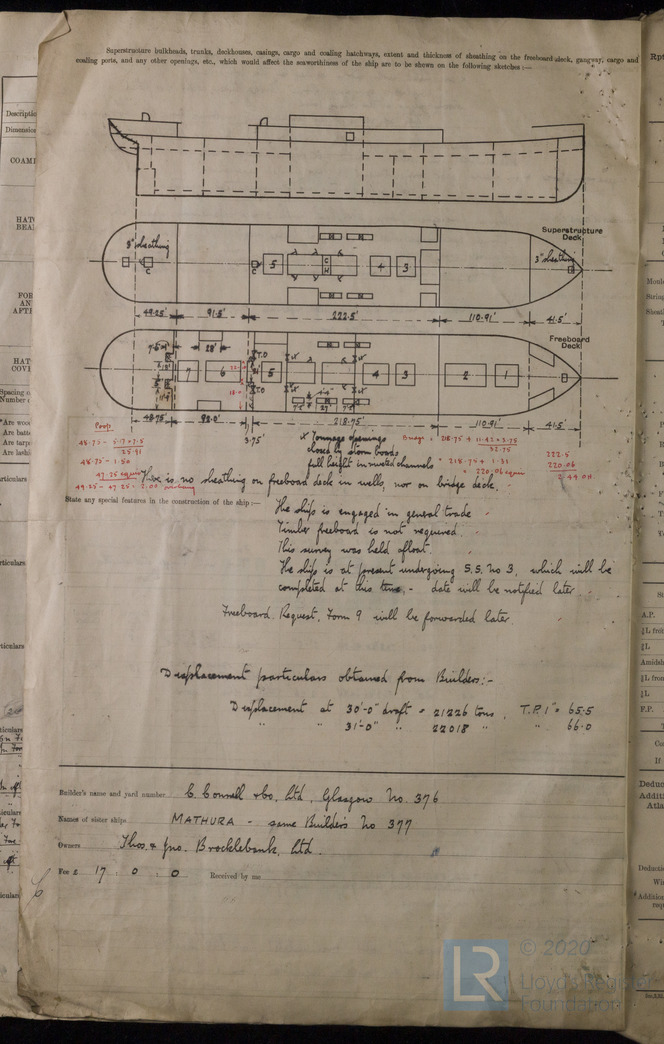 Superstructure bulkheads, trunks, deckhouses, casings, cargo and coaling hatchways, extent and thickness of sheathing on the freeboard deck, gangway, cargo and
coaling ports, and any other openings, etc., which would affect the seaworthiness of the ship are to be shewn on the following sketches :—
Superstructure
Deck
3" sheathing
3" sheathing
C
C
C
5
C
H
4
3
49.25'
91.5'
222.5'
110.91'
41.5'
Freeboard
Deck
28'
7
6
5
4
3
2
1
T.O
T.O
48.75'
92.0'
3.75'
218.75'
110.91'
41.5'
Poop
48.75 - 5.7 × 7.5
25.91
48.75 - 1.50
47.25
49.25 - 47.25 = 2.00
X Tonnage openings
closed by storm boards
full height in riveted channels
Bridge = 218.75 + 11.42 × 3.75
32.75
= 218.75 + 1.31
= 220.06
222.5
220.06
2.44 OH
There is no sheathing on freeboard deck in wells, nor on bridge deck.
State any special features in the construction of the ship :—
The ship is engaged in general trade
Timber freeboard is not required.
This survey was held afloat.
The ship is at present undergoing S.S. No 3, which will be
completed at this time, - date will be notified later.
Freeboard Request, Form 9 will be forwarded later.
Displacement particulars obtained from Builders:-
Displacement at 30'-0" draft = 21226 tons, T.P.1" = 65.5
" " 31'-0" " 22018 " " = 66.0
Builder's name and yard number C. Connell & Co, Ltd, Glasgow No. 376
Names of sister ships MATHURA - same Builders No 377
Owners Thos. & Jno. Brocklebank, Ltd.
Fee £ 17 . 0 . 0 Received by me
LR
© 2020
Lloyd's Register
Foundation